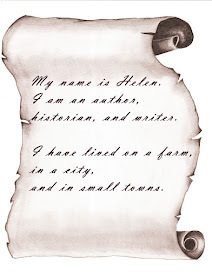 My name is Helen.
I am an author,
historian, and writer.
I have lived on a farm,
in a city,
and in small towns.